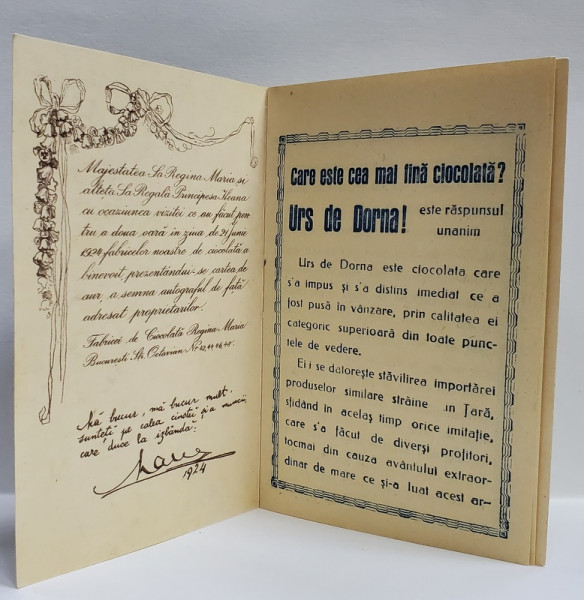 Majestatea Sa Regina Maria si
alteța Sa Regală Principesa Ileana
cu ocaziunea vizitei ce au făcut pen
tru a doua oară în ziua de 21 Iunie
1924 fabricelor noastre de ciocolată a
binevoit prezentându-se cartea de
aur, a semna autograful de față
adresat proprietarilor.
Fabricei de Ciocolată Regina Maria
București Str. Octavian Nº 42, 44, 46, 48.
Mă bucur, mă bucur mult.
sunteți pe calea cinstei și a muncii
care duce la izbândă.
Maria
1924
Care este cea mai fină ciocolată?
Urs de Dorna! este răspunsul
unanim
Urs de Dorna este ciocolata care
s'a impus și s'a distins imediat ce a
fost pusă în vânzare, prin calitatea ei
categoric superioară din toate punc-
tele de vedere.
Ei i se datorește stăvilirea importărei
produselor similare străine în Țară,
sfidând în acelaș timp orice imitație,
care s'a făcut de diverși profitori,
tocmai din cauza avântului extraor-
dinar de mare ce și-a luat acest ar-